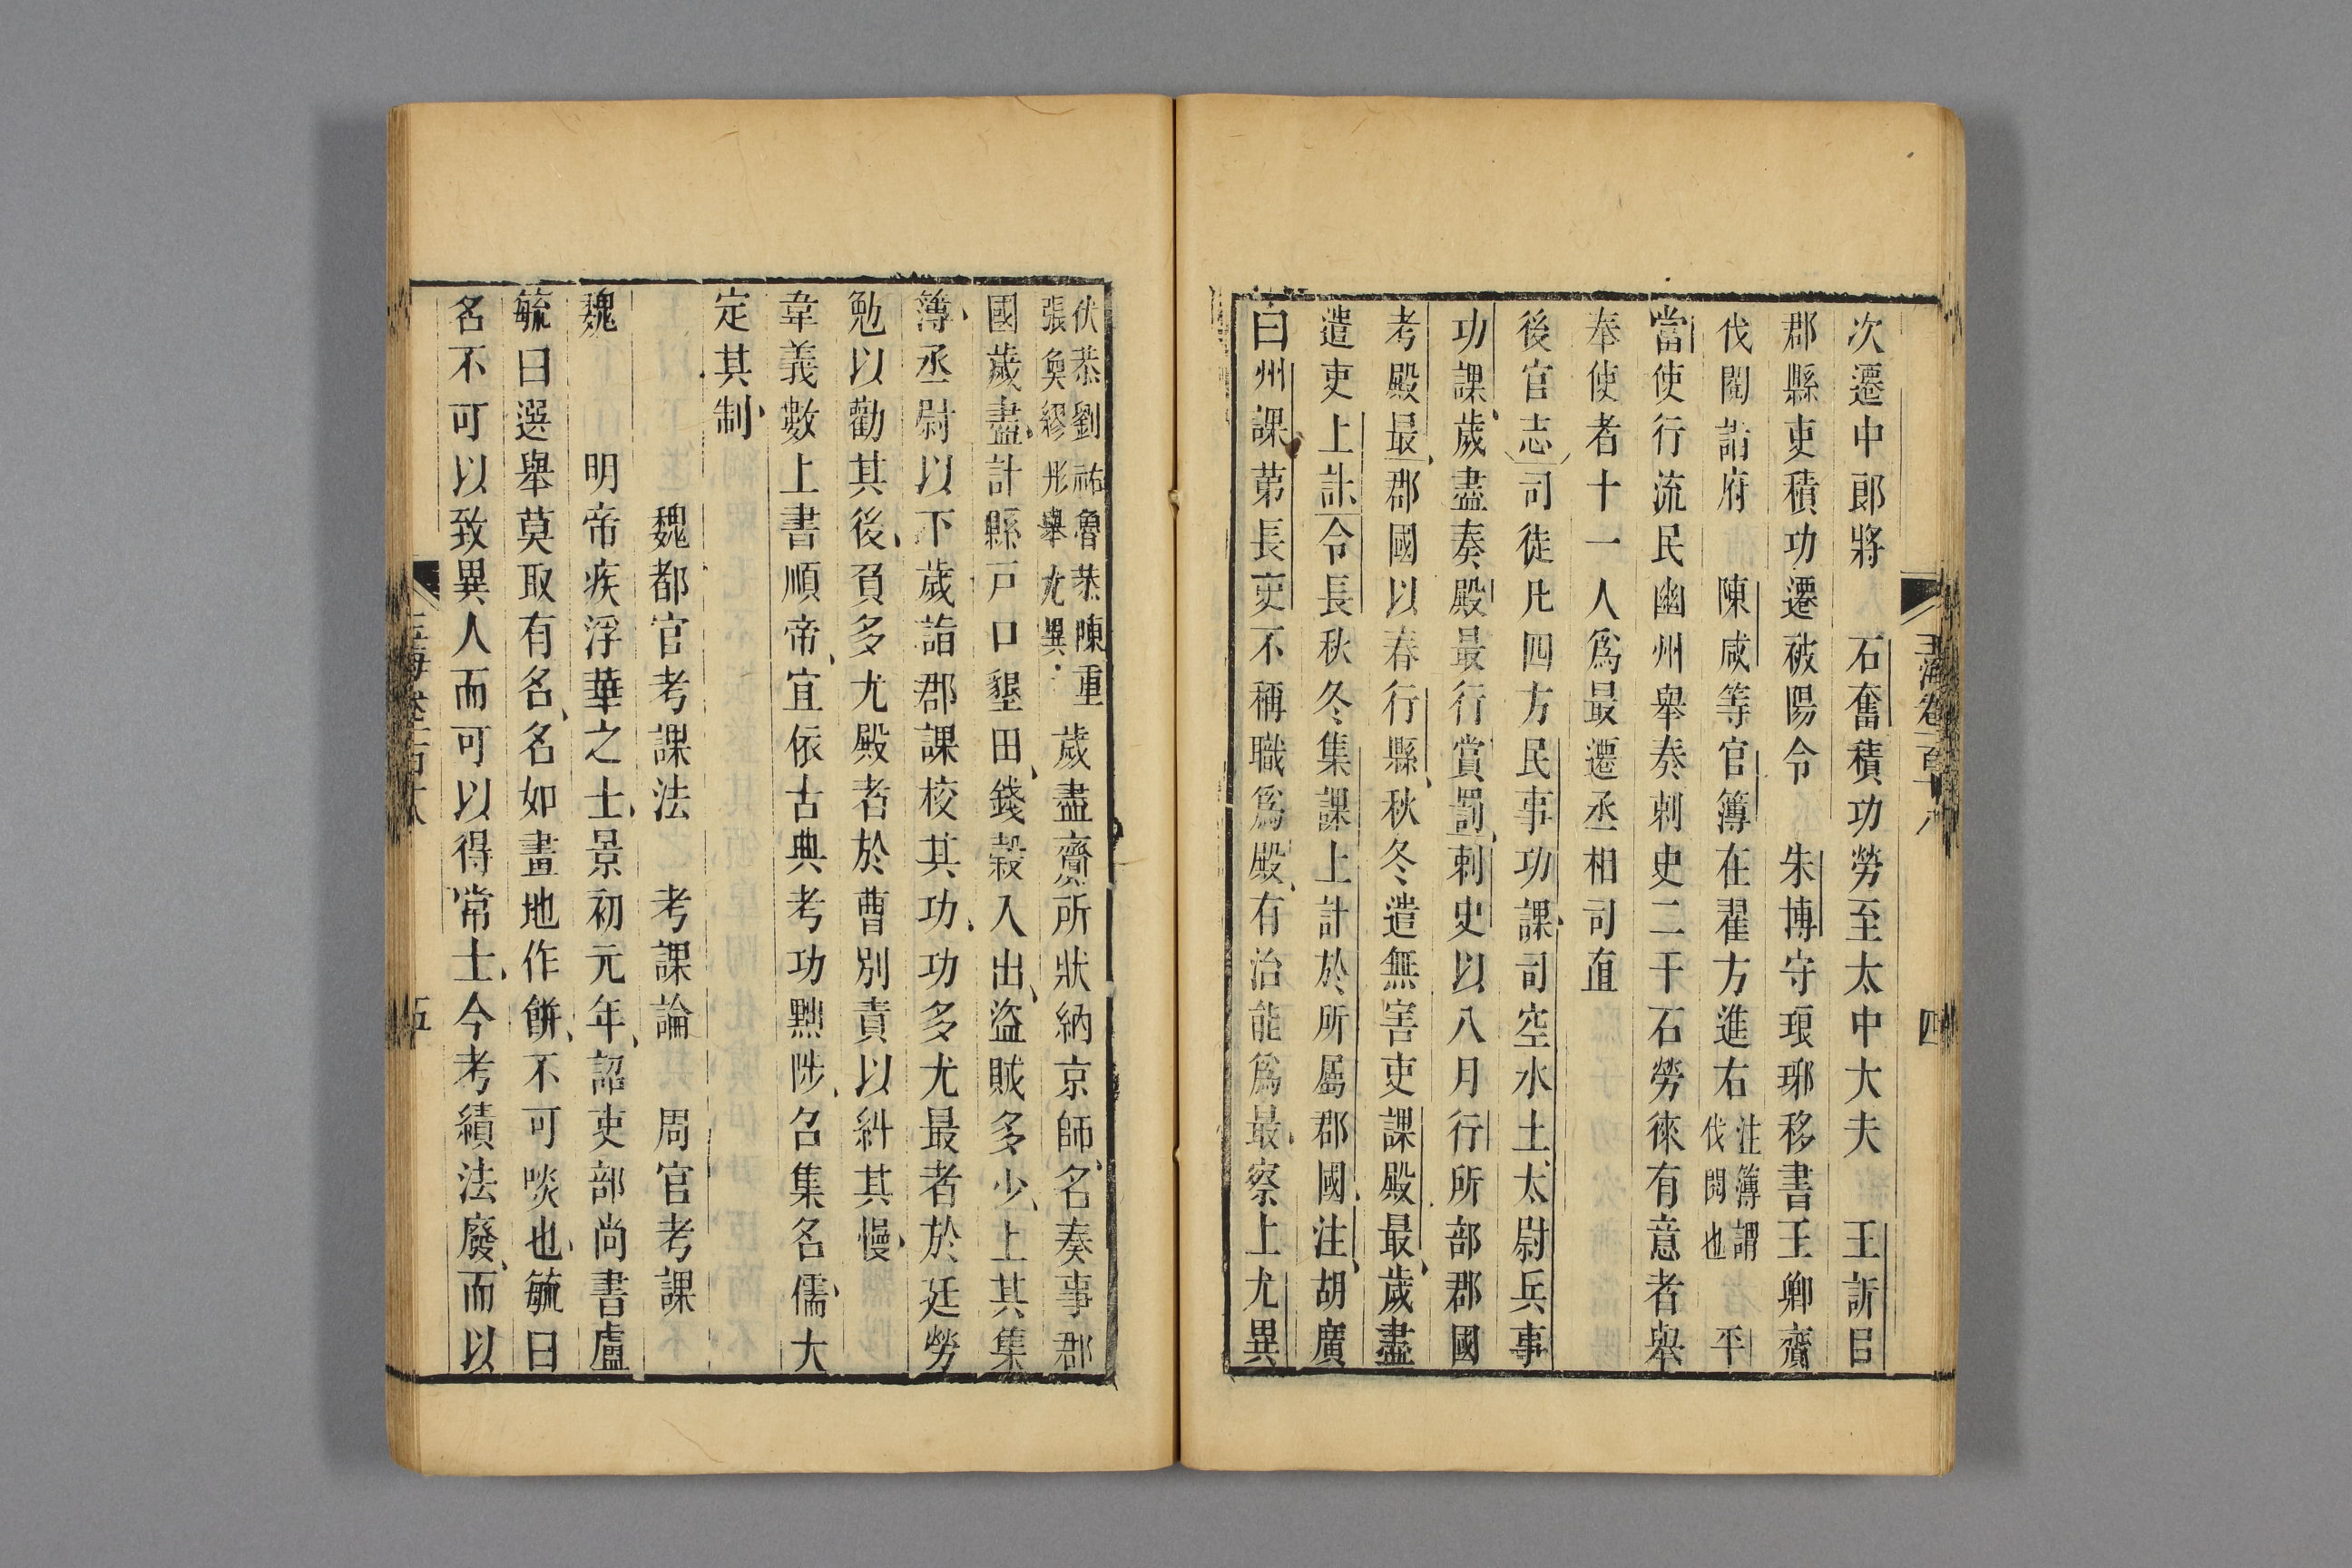 次遷中郎將　石奮積功勞至太中大夫　王訢㠯
郡縣吏積功遷被陽令　朱博守琅琊移書王卿齎
伐閱詣府　陳咸等官簿在翟方進右注簿謂伐閱也　平
當使行流民幽州舉奏刺史二千石勞徠有意者舉
奉使者十一人爲最遷丞相司直
後官志司徒凡四方民事功課司空水土太尉兵事
功課歲盡奏殿最行賞罰刺史以八月行所部郡國
考殿最郡國以春行縣秋冬遣無害吏課殿最歲盡
遣吏上計令長秋冬集課上計於所屬郡國注胡廣
曰州課第長吏不稱職爲殿有治能爲最察上尤異
伏恭劉祐魯恭陳重張奐繆彤舉尤異歲盡齎所狀納京師名奏事郡
國歲盡計縣戸口墾田錢榖入出盜賊多少上其集
簿丞尉以下歲詣郡課校其功功多尤最者於廷勞
勉以勸其後負多尤殿者於曹別責以糾其慢
韋義數上書順帝宜依古典考功黜陟名集名儒大
定其制
魏都官考課法　考課論　周官考課
魏　明帝疾浮華之士景初元年詔吏部尚書盧
毓曰選舉莫取有名名如畫地作餅不可啖也毓曰
名不可以致異人而可以得常士今考績法廢而以
玉海卷一百十八
四
五